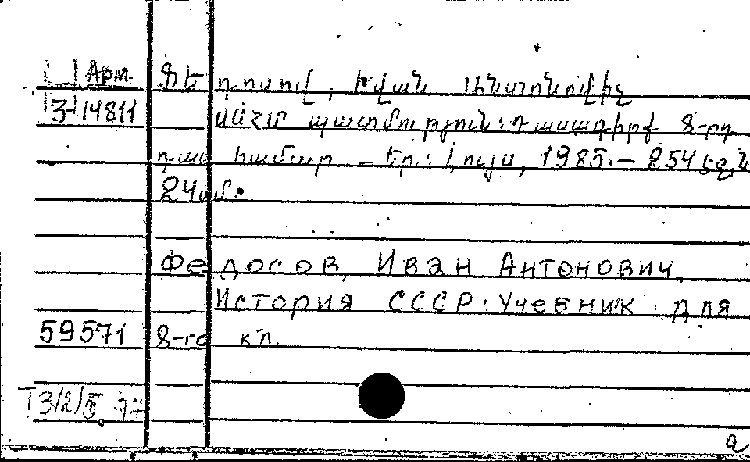 Арм. Ֆեդոսով, Իվան Անտոնովիչ
3-14811 ՍՍՀՄ պատմություն: Դասագիրք 8-րդ
դաս. համար. – Եր.: Լույս, 1985. – 254 էջ;
24 սմ.
Федосов, Иван Антонович.
История СССР. Учебник для
59571 8-го кл.